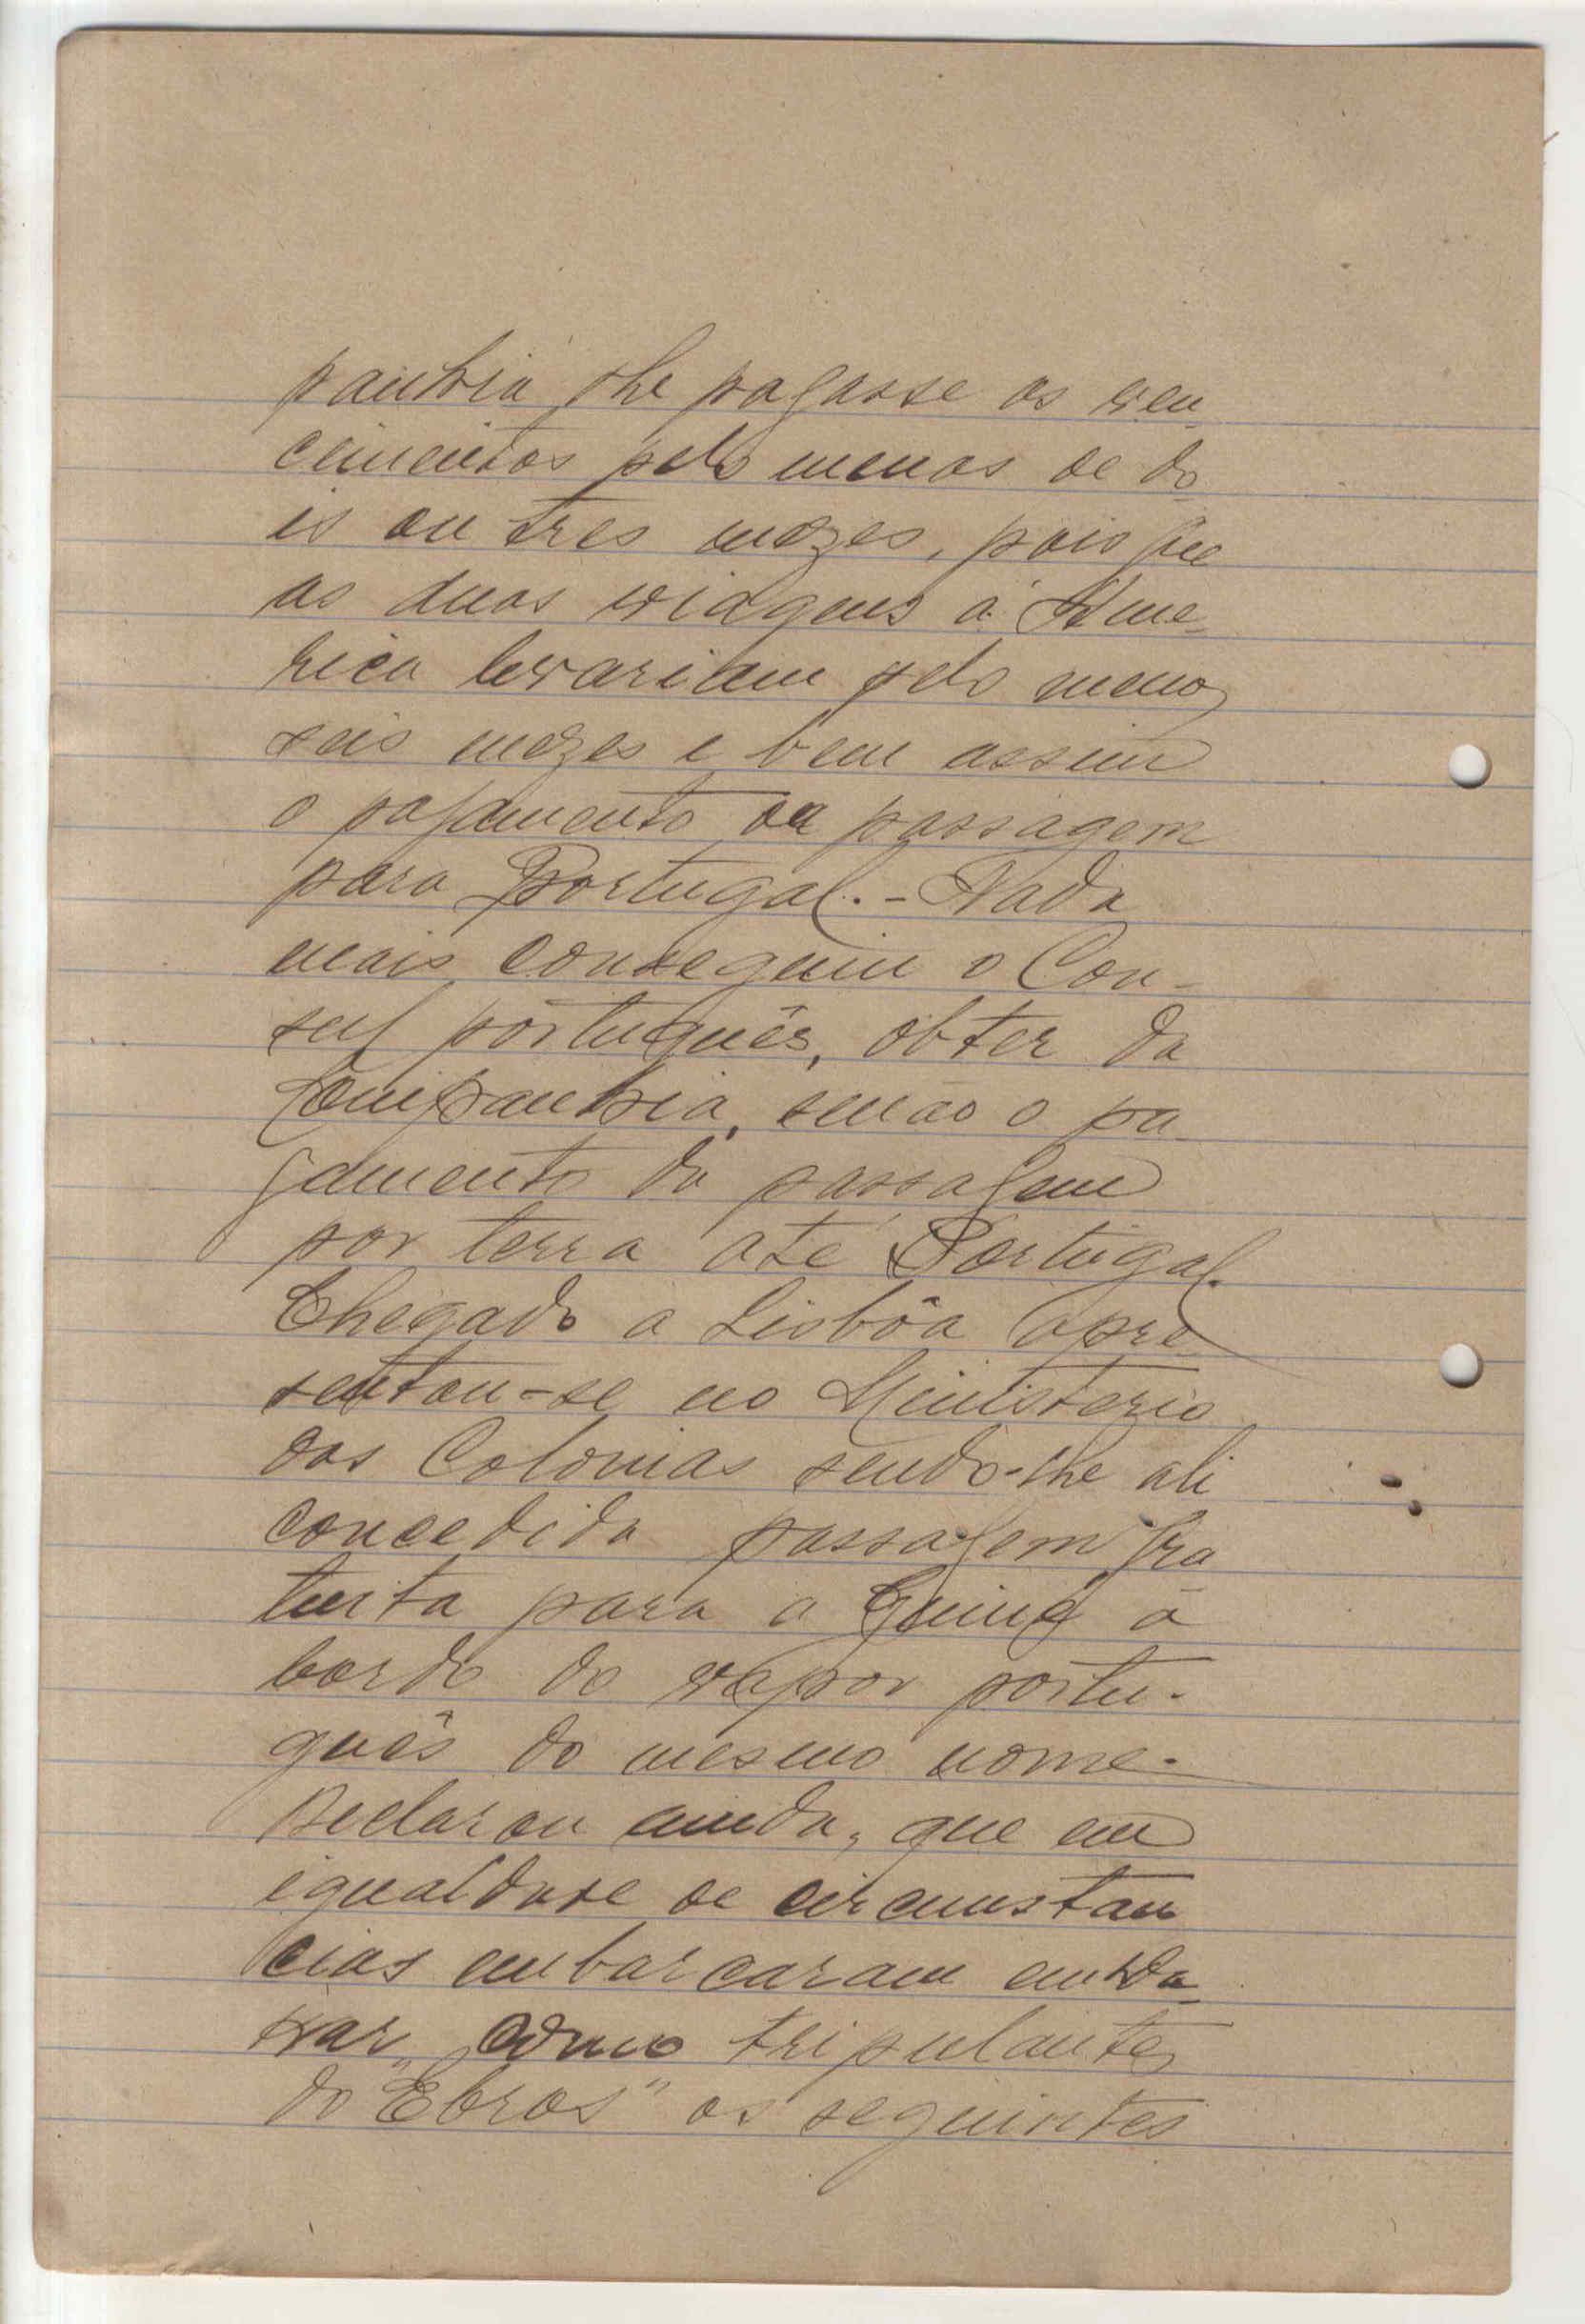 panhia lhe pagasse os ven
cimentos pelo menos de do
is ou tres mezes, pois que
as duas viagens á Ame-
rica levariam pelo menos
seis mezes e bem assim
o pagamento da passagem
para Portugal. - Nada
mais conseguiu o Con-
sul português, obter da
Companhia, senão o pa
gamento da passagem
por terra até Portugal.
Chegado a Lisbôa apre
sentou-se no Ministerio
das Colonias sendo-lhe ali
concedida passagem gra
tuita para a Guiné a
bordo do vapor portu-
guês do mesmo nome.
Declarou ainda, que em
igualdade de circunstan
cias embarcaram em Da
kar, como tripulantes
do "Ebros" os seguintes